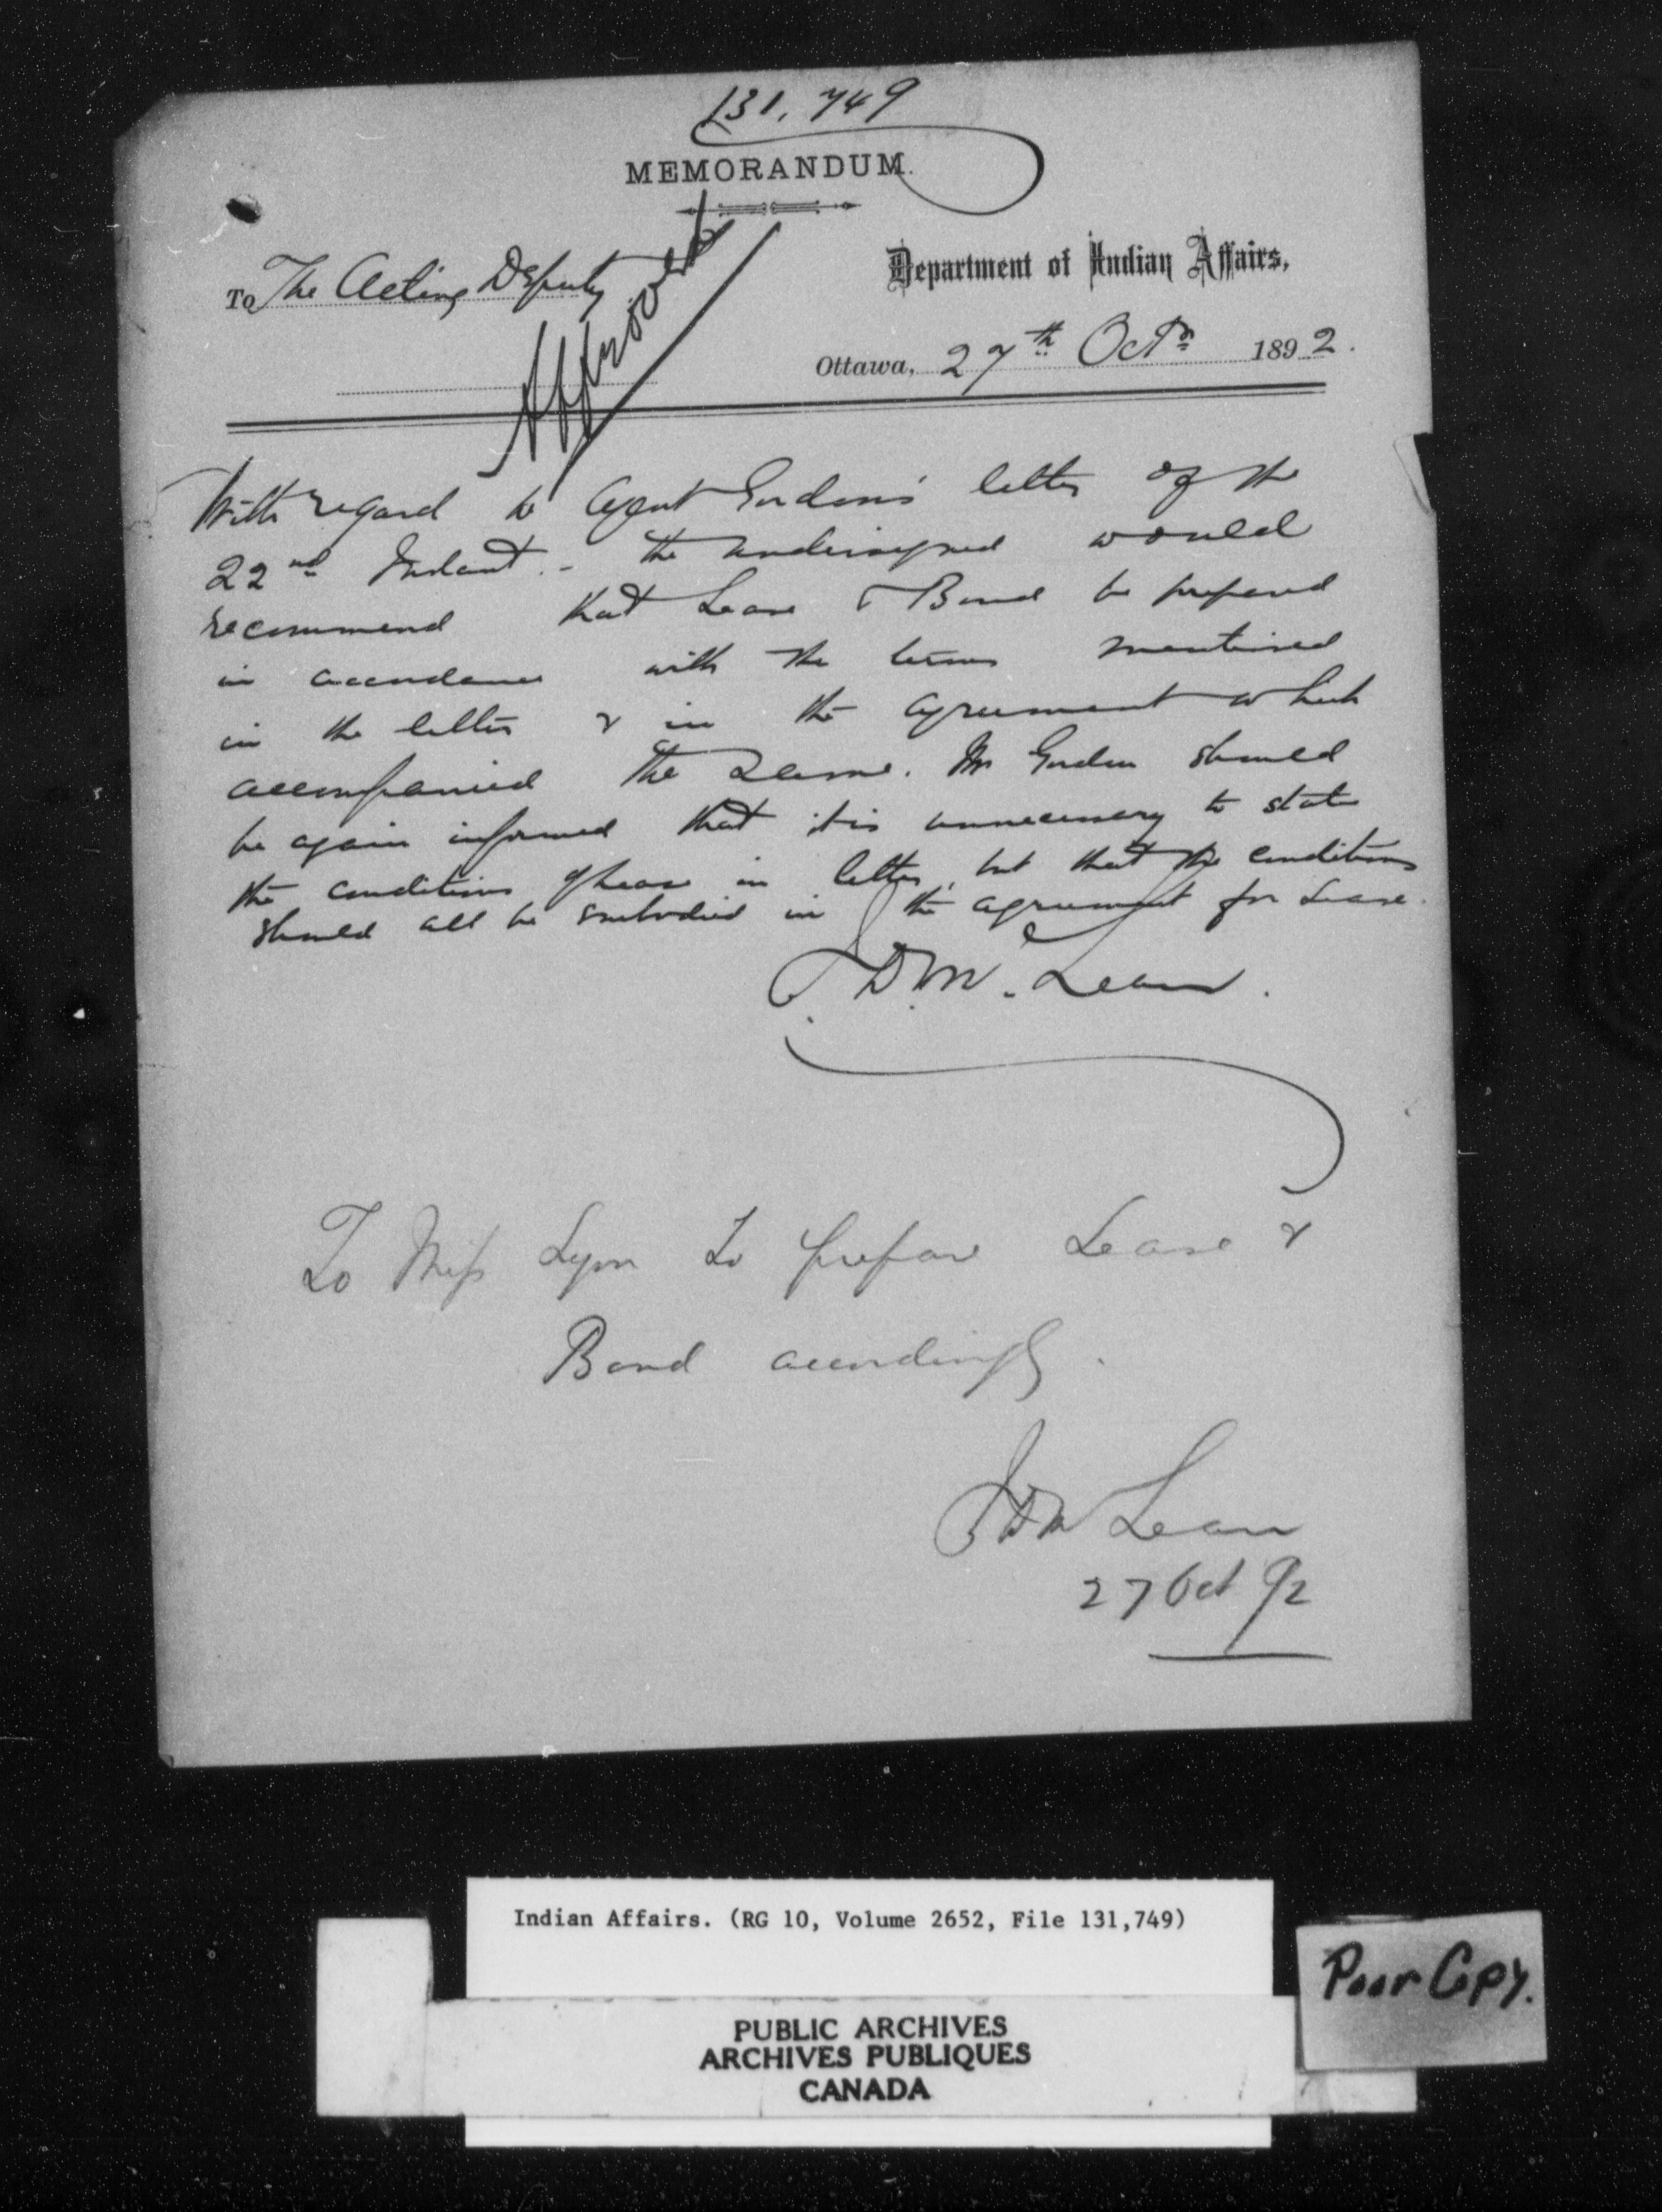 131,749
MEMORANDUM.
To The Acting Deputy
Approved
Department of Indian Affairs,
Ottawa, 27th Octr 1892.
With regard to Agent Gordon's letter of the
22nd Instant. - the undersigned would
recommend that Lease & Bond be prepared
in accordance with the terms mentioned
in the letter & in the agreement which
accompanied the same. Mr Gordon should
be again informed that it is unnecessary to state
the conditions of lease in letter, but that the conditions
should all be embodied in the agreement for Lease.
J.D.McLean.
To Miss Lyon to prepare Lease &
Bond accordingly.
JDMcLean
27 Oct 92
Indian Affairs. (RG 10, Volume 2652, File 131,749)
PUBLIC ARCHIVES
ARCHIVES PUBLIQUES
CANADA
Poor Copy.